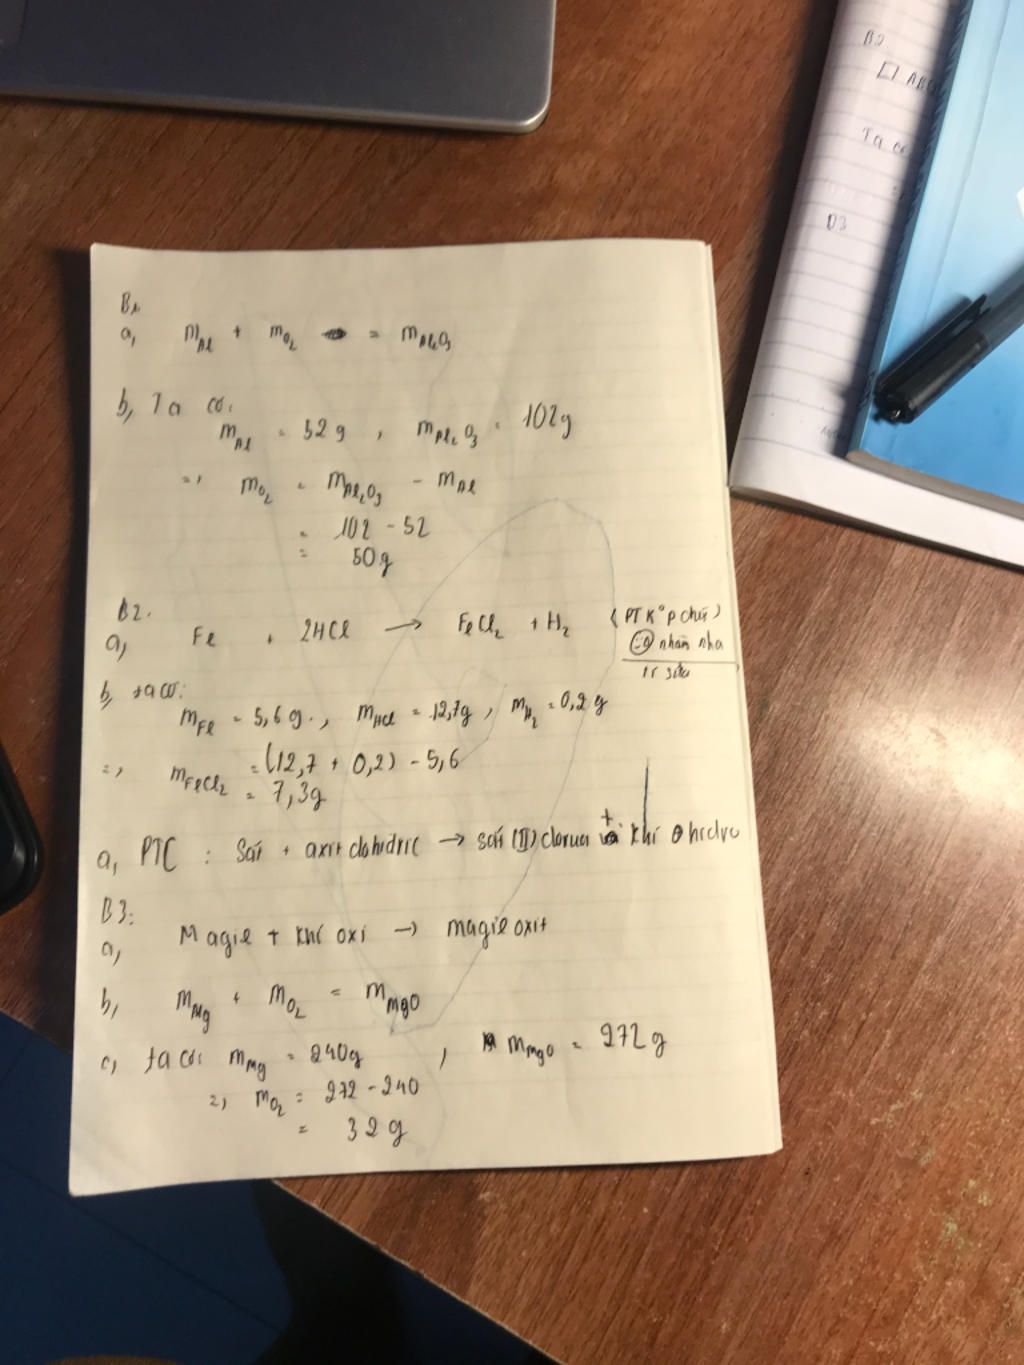 B1
a, mAl + mO2 = mAl2O3
b, Ta có:
mAl = 52g , mAl2O3 = 102g
=> mO2 = mAl2O3 - mAl
= 102 - 52
= 50g
B2.
a, Fe + 2HCl → FeCl2 + H2 (PTK° p chứ)
nhầm nha
tí sửa
b, ta có:
mFe = 5,6g. , mHCl = 12,7g , mH2 = 0,2g
=> mFeCl2 = (12,7 + 0,2) - 5,6
= 7,3g
a, PTC : Sắt + axit clohidric → sắt (II) clorua + khí hidro
B3:
a, Magie + khí oxi → magie oxit
b, mMg + mO2 = mMgO
c, ta có: mMg = 240g , mMgO = 272g
=> mO2 = 272 - 240
= 32g
B2
□ ABC
Ta có